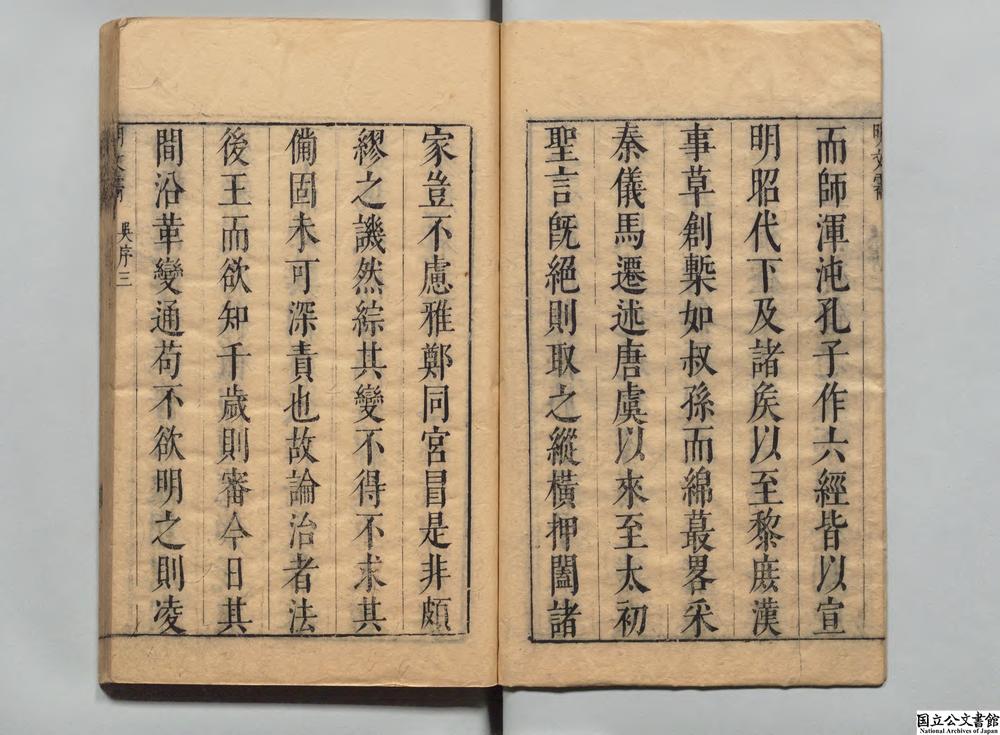 而師渾沌孔子作六經皆以宣
明昭代下及諸矦以至黎庶漢
事草創槧如叔孫而綿蕞畧采
秦儀馬遷述唐虞以來至太初
聖言旣絕則取之縱橫押闔諸
家豈不慮雅鄭同宮冒是非頗
繆之譏然綜其變不得不求其
備固未可深責也故論治者法
後王而欲知千歲則審今日其
間沿革變通苟不欲明之則凌
吳序三
国立公文書館
National Archives of Japan